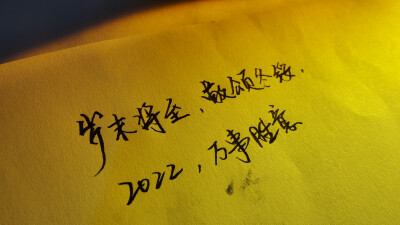 岁末将至，敬颂冬绥.
2022，万事胜意